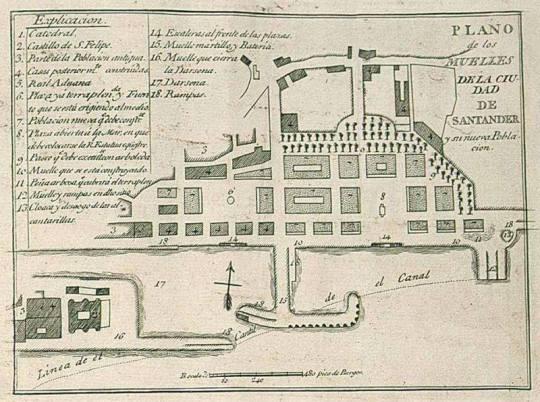 Explicacion.
1. Catedral.
2. Castillo de S. Felipe.
3. Parte de la Poblacion antigua.
4. Casas posteriorm.te construidas.
5. Real Aduana
6. Plaza ya terraplen.da y Fuen
te que se está erigiendo al medio.
7. Poblacion nueva q.e debe const.se
8. Plaza abierta á la Mar, en que
debe colocarse la R. Estatua equestre.
9. Paseo q.e debe
10. Muelle que se está construyendo.
11. Peña
12. Muelle y rampas
13. Cloaca y desaogo de las al-
cantarillas.
14. Escaleras al frente de las plazas.
15. Muelle martillo y Bateria.
16. Muelle que cierra
la Darsena.
17. Darsena.
18. Rampas.
PLANO
de los
MUELLES
DE LA CIU
DAD
DE
SANTANDER
y su nueva Pobla
cion.
Linea de el Cantil de el Canal
Escala de 480 pies de Burgos.